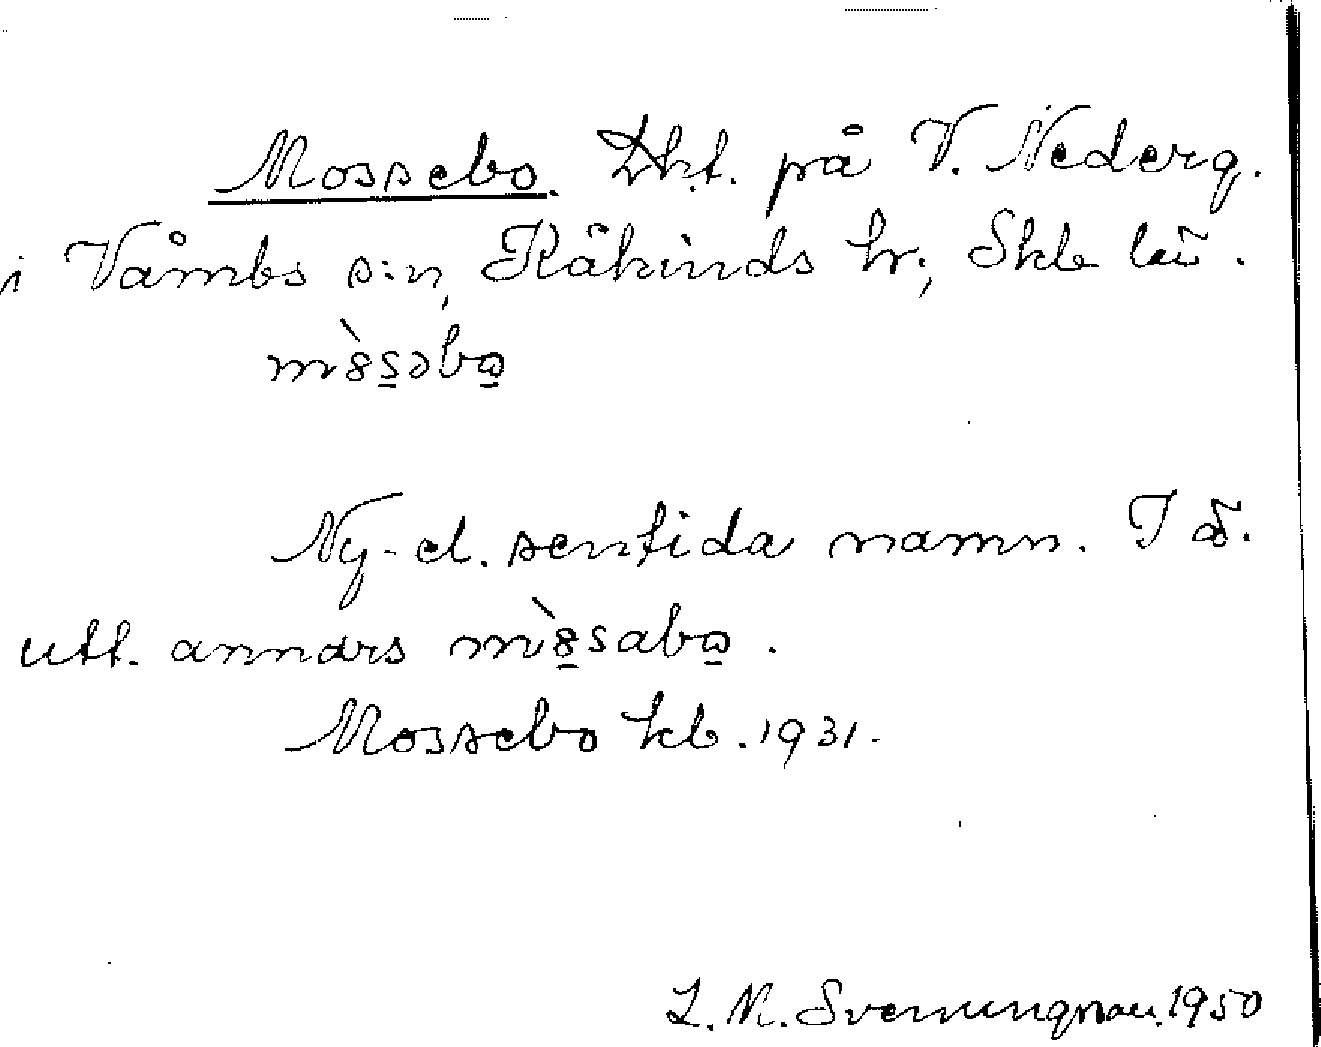 Mossebo. Dkt. på V. Nederg.
i Våmbs s:n, Kåkinds hr; Skb län.
m8̀s̲əbω̲
Ny- el. sentida namn. I ö.
utt. annars m8̲̀sabω̲.
Mossebo kb. 1931.
L. N. Svenungsson. 1950